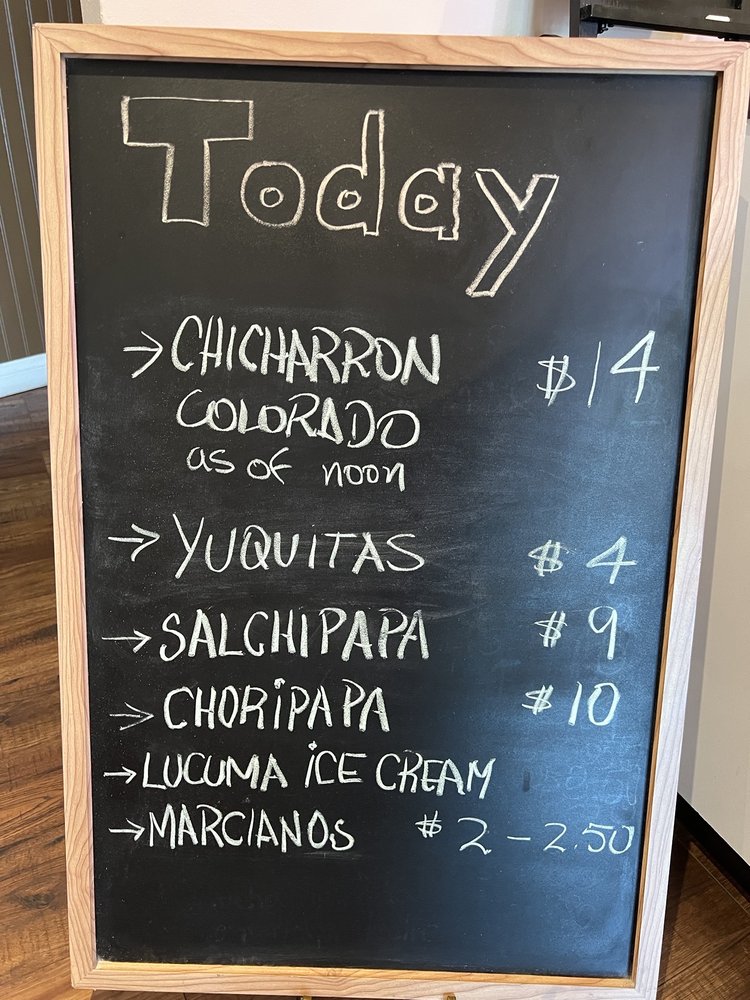 Today
→ CHICHARRON $14
COLORADO
as of noon
→ YUQUITAS $4
→ SALCHIPAPA $9
→ CHORiPAPA $10
→ LUCUMA iCE CREAM
→ MARCIANOs $2 - 2.50